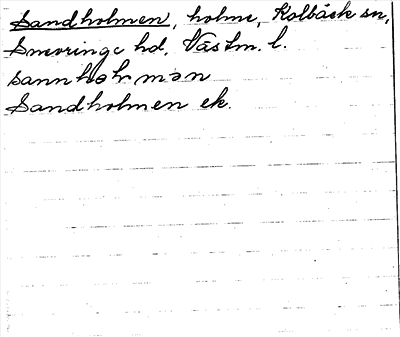 Sandholmen, holme, Kolbäck sn,
Snevringe hd, Västm. l.
sannhɷlmən
Sandholmen ek.